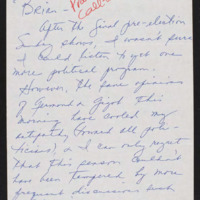 Brien -
After the final pre-election
Sunday shows, I wasn't sure
I could listen to yet one
more political program.
However, the sane opinions
of Germond & Gigot this
morning have cooled my
antipathy toward all poli-
ticians, & I can only regret
that this season couldn't
have been tempered by more
frequent discussions such